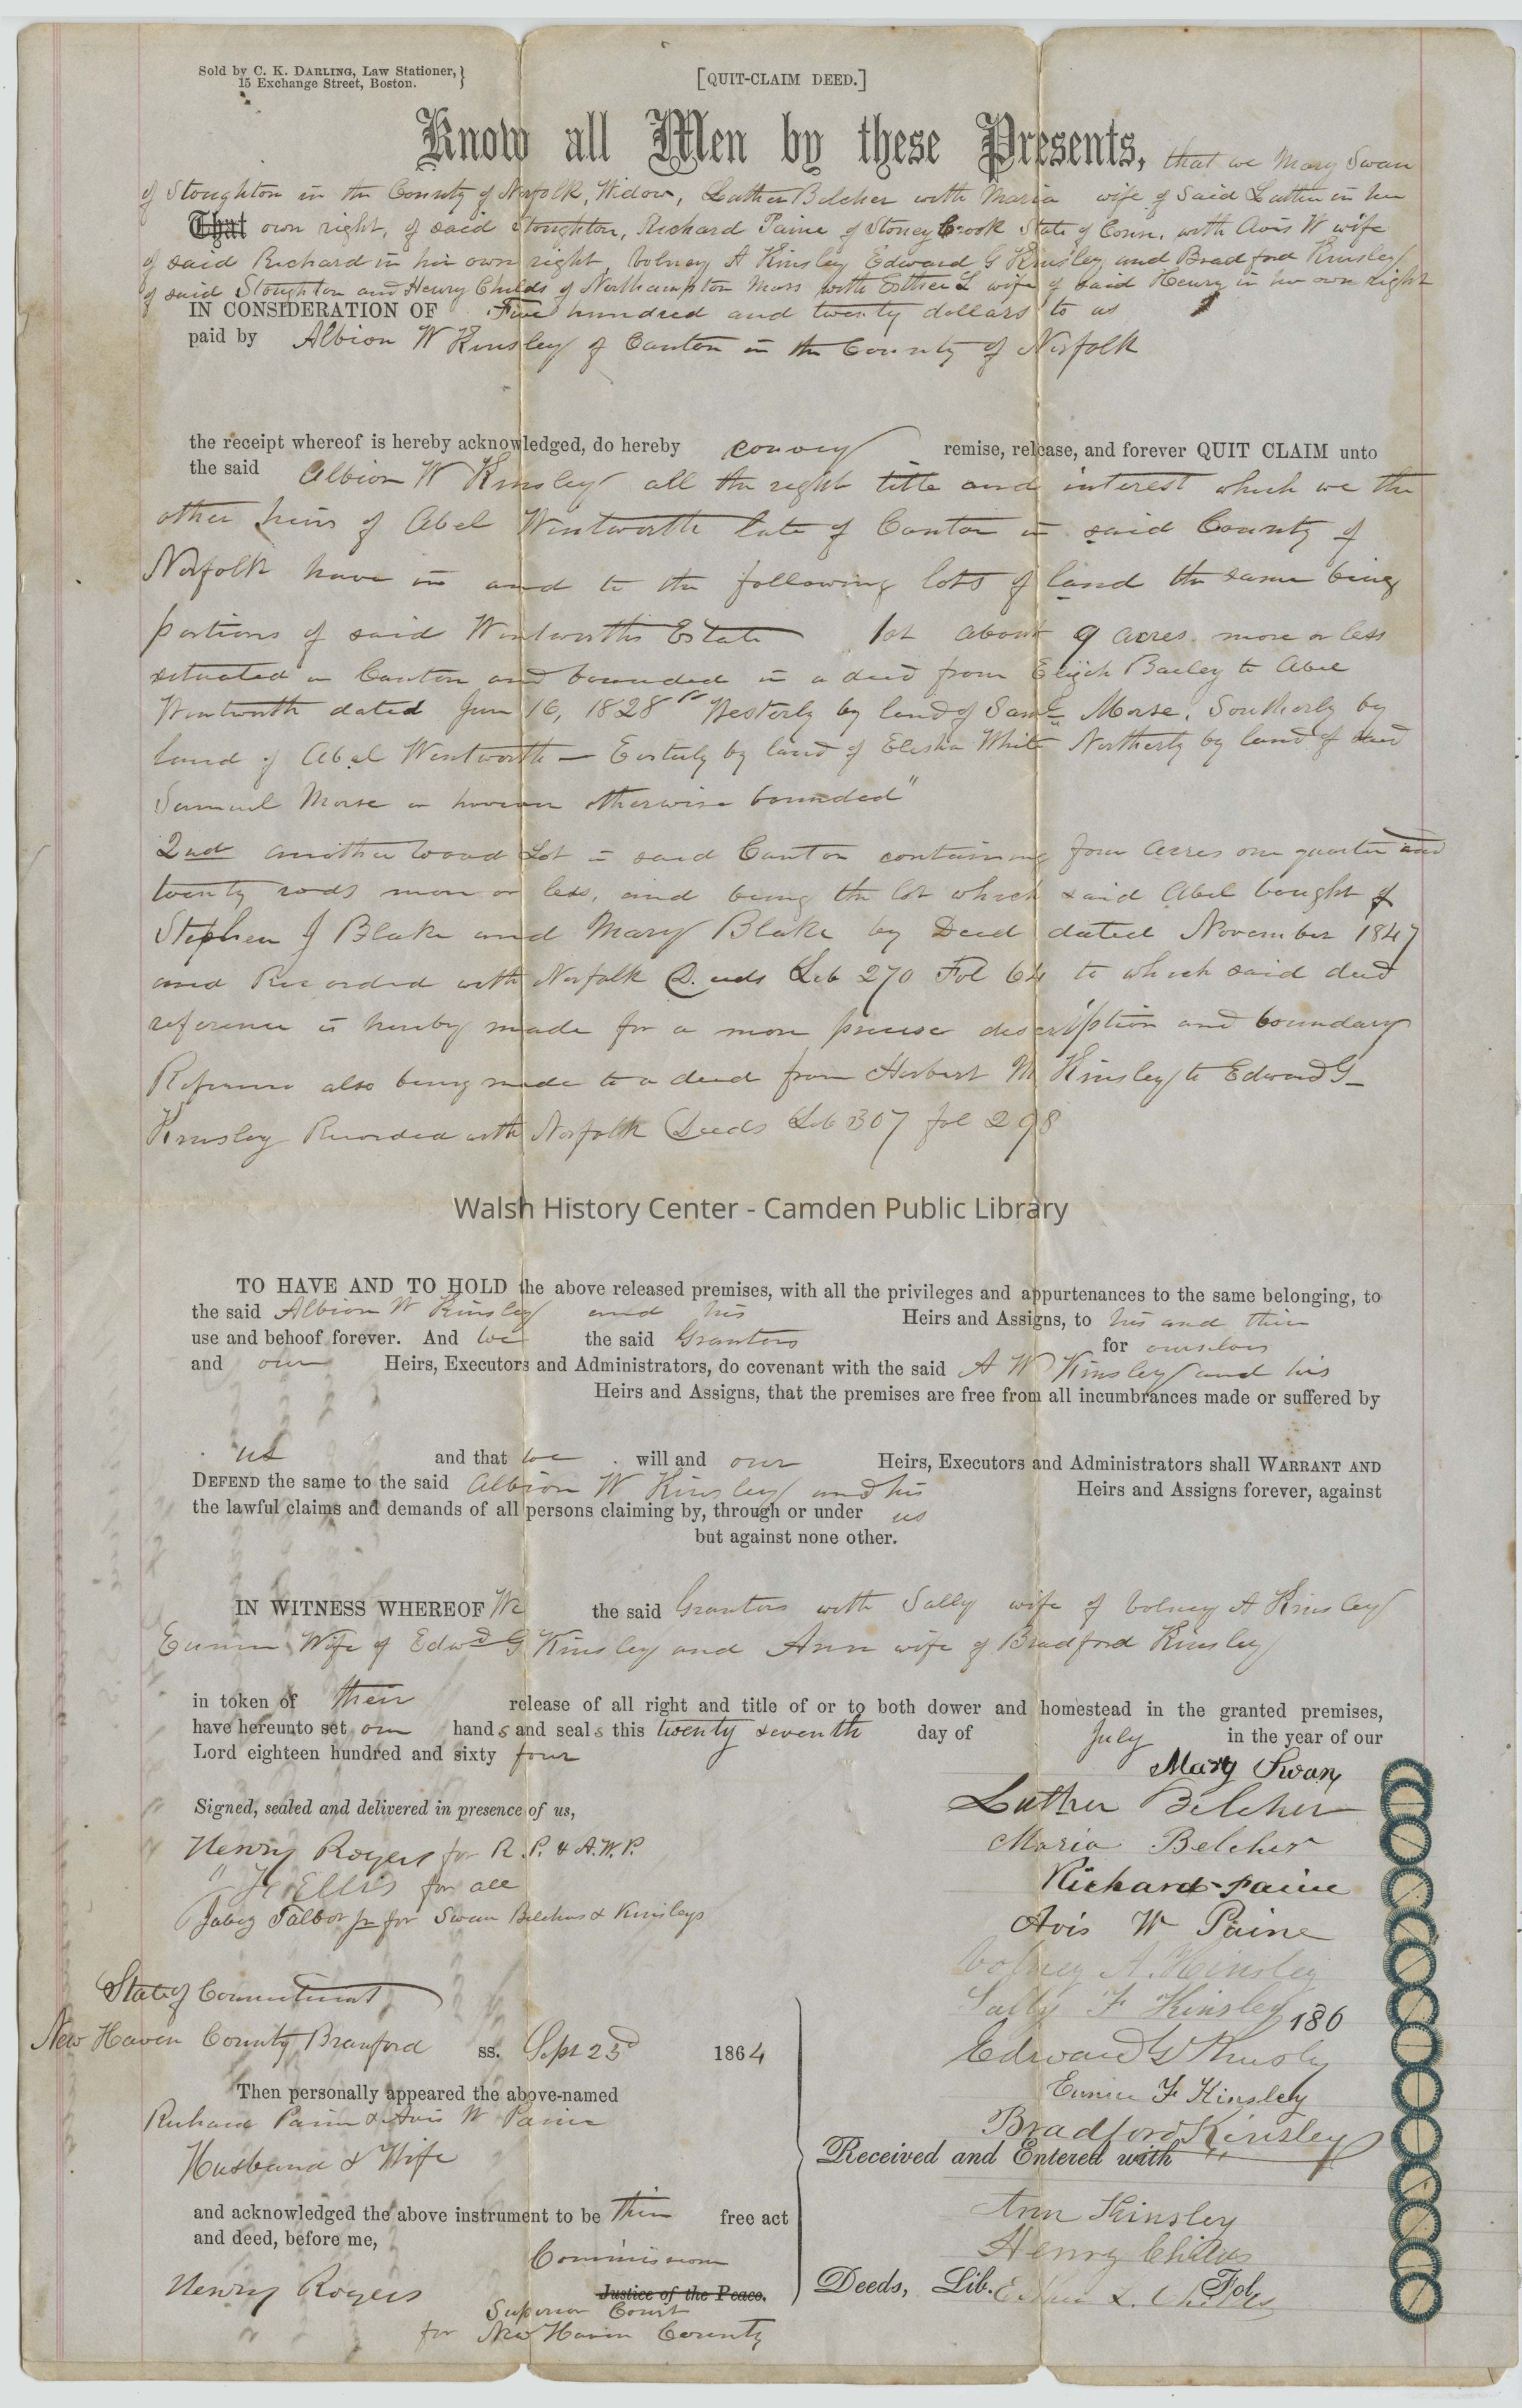 Sold by C. K. Darling, Law Stationer,}
15 Exchange Street, Boston.
[QUIT-CLAIM DEED.]
Know all Men by these Presents, that we Mary Swan
of Stoughton in the County of Norfolk, Widow, Luther Belcher with Maria wife of Said Luther in her
That own right, of said Stoughton, Richard Paine of Stoney Crook State of Conn. with Avis W wife
of said Richard in her own right, Volney A Kinsley Edward G Kinsley and Bradford Kinsley
of said Stoughton and Henry Childs of Northampton Mass with Esther L wife of said Henry in her own right
IN CONSIDERATION OF Five hundred and twenty dollars to us
paid by Albion W Kinsley of Canton in the County of Norfolk
the receipt whereof is hereby acknowledged, do hereby convey remise, release, and forever QUIT CLAIM unto
the said Albion W Kinsley all the right title and interest which we the
other heirs of Abel Wentworth late of Canton in said County of
Norfolk have in and to the following lots of land the same being
portions of said Wentworths Estate 1st about 9 acres more or less
situated in Canton and bounded in a deed from Elijah Bailey to Abel
Wentworth dated 16, 1828 "Westerly by land of Saml Morse, Southerly by
land of Abel Wentworth — Easterly by land of Elisha White Northerly by land of said
Samuel Morse or however otherwise bounded"
2nd another Wood Lot in said Canton containing four acres one quarter and
twenty rods more or less, and being the lot which said Abel bought of
Stephen J Blake and Mary Blake by Deed dated November 1847
and Recorded with Norfolk Deeds Lib 270 Fol 64 to which said deed
reference is hereby made for a more precise description and boundary
Reference also being made to a deed from Herbert M Kinsley to Edward G
Kinsley Recorded with Norfolk Deeds Lib 307 fol 298
Walsh History Center - Camden Public Library
TO HAVE AND TO HOLD the above released premises, with all the privileges and appurtenances to the same belonging, to
the said Albion W Kinsley and his Heirs and Assigns, to his and their
use and behoof forever. And we the said Grantors for ourselves
and our Heirs, Executors and Administrators, do covenant with the said A W Kinsley and his
Heirs and Assigns, that the premises are free from all incumbrances made or suffered by
us and that we will and our Heirs, Executors and Administrators shall WARRANT AND
DEFEND the same to the said Albion W Kinsley and his Heirs and Assigns forever, against
the lawful claims and demands of all persons claiming by, through or under us
but against none other.
IN WITNESS WHEREOF We the said Grantors with Sally wife of Volney A Kinsley
Eunice Wife of Edwd G Kinsley and Ann wife of Bradford Kinsley
in token of their release of all right and title of or to both dower and homestead in the granted premises,
have hereunto set our hands and seals this twenty seventh day of July in the year of our
Lord eighteen hundred and sixty four
Mary Swan
Signed, sealed and delivered in presence of us,
Luther Belcher
Henry Rogers for R. P. & A. W. P.
Maria Belcher
" Ellis for all
Richard Paine
Jabez Talbot Jr for Swan Belchers & Kinsleys
Avis W Paine
Volney A. Kinsley
State of Connecticut
Sally F Kinsley
186
New Haven County Branford ss. Sept 23d 1864
Edward G Kinsley
Then personally appeared the above-named
Eunice F Kinsley
Richard Paine & Avis W Paine
Bradford Kinsley
Husband & Wife
Received and Entered with
and acknowledged the above instrument to be their free act
Ann Kinsley
and deed, before me,
Henry Childs
Commissioner
Henry Rogers
Justice of the Peace.
Deeds, Lib. Fol.
Esther L. Childs
Superior Court
for New Haven County